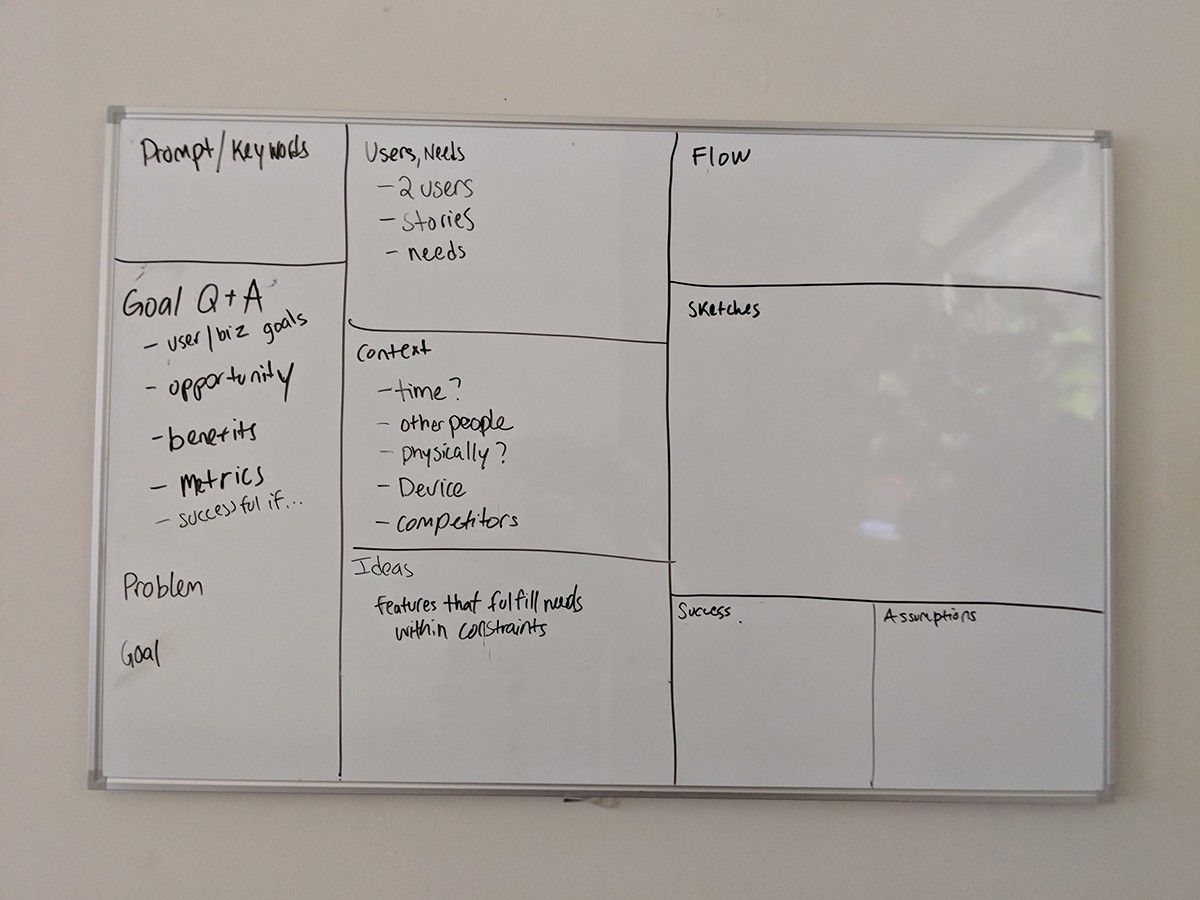 Prompt/Keywords
Goal Q+A
- user/biz goals
- opportunity
- benefits
- Metrics
- successful if...
Problem
Goal
Users, Needs
- 2 users
- stories
- needs
Context
- time?
- other people
- physically?
- Device
- competitors
Ideas
features that fulfill needs
within constraints
Flow
Sketches
Success
Assumptions